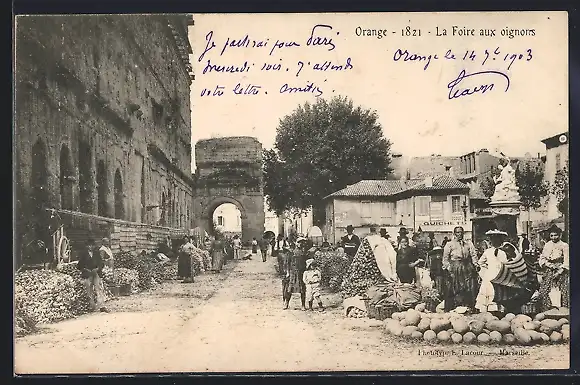 Orange - 1821 - La Foire aux oignons
Je partirai pour Paris
mercredi soir. J'attends
votre lettre. Amitiés
Orange le 14 7bre 1903
GUICHETS
Phototypie E. Lacour. — Marseille.